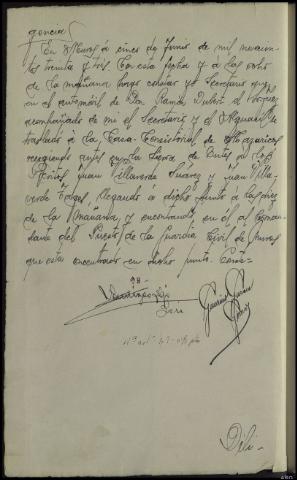 gencia/
En Muros a cinco de Junio de mil novecien
tos treinta y tres. Con esta fecha y a las ocho
de la mañana hago constar yo Secretario que
en el automóvil de Don Ramón
acompañado de mi el Secretario y el Alguacil se
trasladó a la Casa Consistorial de Mazaricos
recogiendo antes en la de Outes a los
Peritos Juan Villaverde Suarez y Juan Villa-
verde llegando a dicho punto a las diez
de la mañana y encontrando en él al Coman
dante del Puesto de la Guardia Civil de Muros
que esta encontrado en dicho punto.
Dili-